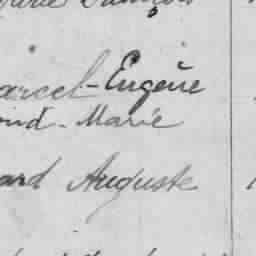 Marie François
arcel-Eugène
ond-Marie
ard Auguste